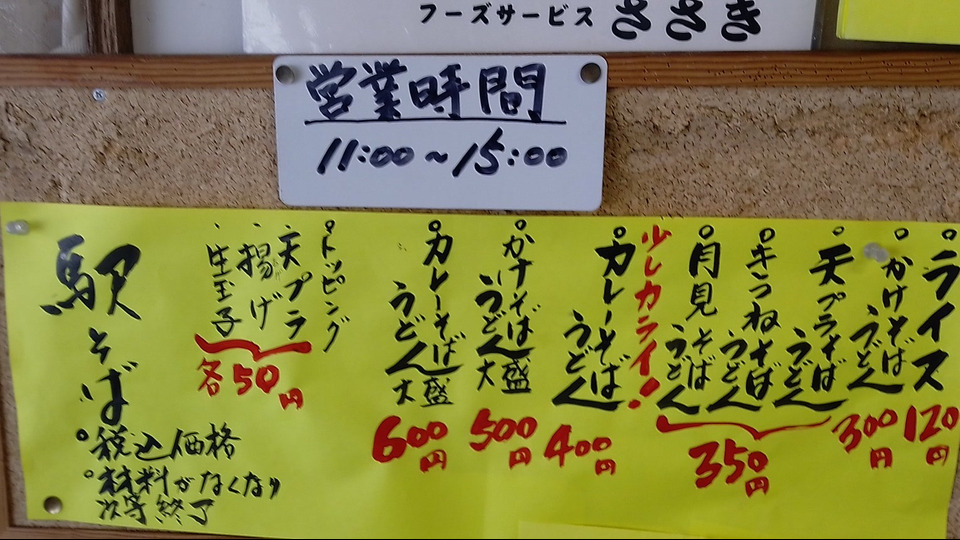 フーズサービス ささき
営業時間
11:00~15:00
ライス
120円
かけそば
うどん
300円
天プラそば
うどん
きつねそば
うどん
月見そば
うどん
350円
少しカライ!
カレーそば
うどん
400円
かけそば
うどん大盛
500円
カレーそば
うどん大盛
600円
トッピング
天プラ
揚げ
生玉子
各50円
駅そば
税込価格
材料がなくなり
次第終了